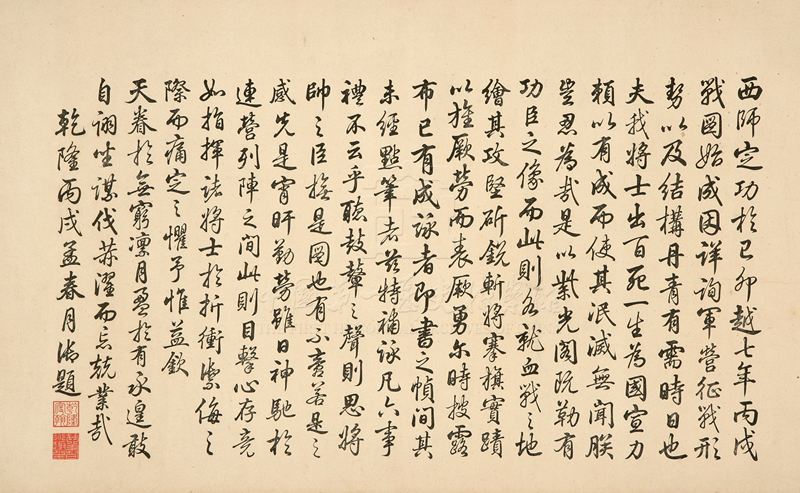 西師定功於己卯越七年丙戌
戰圖始成因詳詢軍營征戰形
勢以及結構丹青有需時日也
夫我將士出百死一生為國宣力
賴以有成而使其泯滅無聞朕
豈忍為哉是以紫光閣既勒有
功臣之像而此則各就血戰之地
繪其攻堅斫銳斬將搴旗實蹟
以旌厥勞而表厥勇尔時披露
布已有成詠者即書之幀間其
未經點筆者茲特補詠凡六事
禮不云乎聽鼓鼙之聲則思將
帥之臣撫是圖也有不啻若是之
感先是宵旰勤勞雖日神馳於
連營列陣之間此則目擊心存竟
如指揮諸將士於折衝禦侮之
際而痛定之懼予惟益欽
天眷於無窮凛月盈於有永遑敢
自詡坐謀伐蘇濯而忘兢業哉
乾隆丙戌孟春月御題